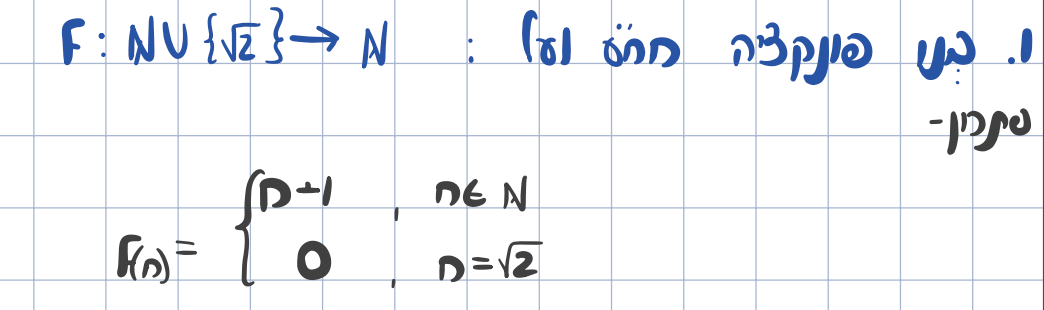 1. בנו פונקציה חח"ע ועל : F: ℕ∪{√2}→ ℕ
פתרון-
F(n)= { n+1 , n∈ ℕ
0 , n=√2